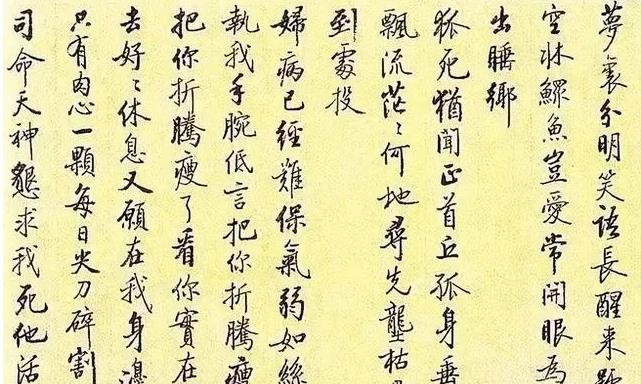 夢裏分明笑語長醒來號
空牀鰥魚豈愛常開眼為
出睡鄉
狐死猶聞正首丘孤身垂
飄流茫〻何地尋先壟枯
到處投
婦病已經難保氣弱如絲
執我手腕低言把你折騰瘦
把你折騰瘦了看你實在
去好〻休息又願在我身邊
只有肉心一顆每日尖刀碎割
司命天神懇求我死他活